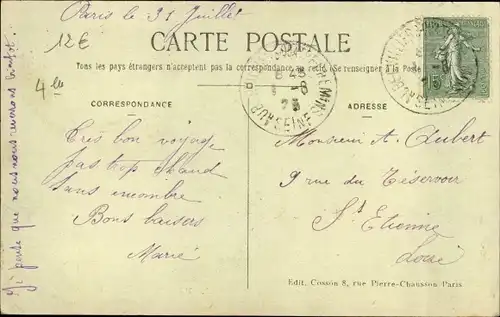 Paris le 31 Juillet
12€
4 le
CARTE POSTALE
Tous les pays étrangers n'acceptent pas la correspondance au recto (Se renseigner à la Poste
CORRESPONDANCE
ADRESSE
Très bon voyage
pas trop chaud
sans encombre
Bons baisers
Marie
Je pense que nous nous reverrons bientôt.
Monsieur A. Aubert
9 rue du Réservoir
St Etienne
Loire
Edit. Cossón 8, rue Pierre-Chausson Paris